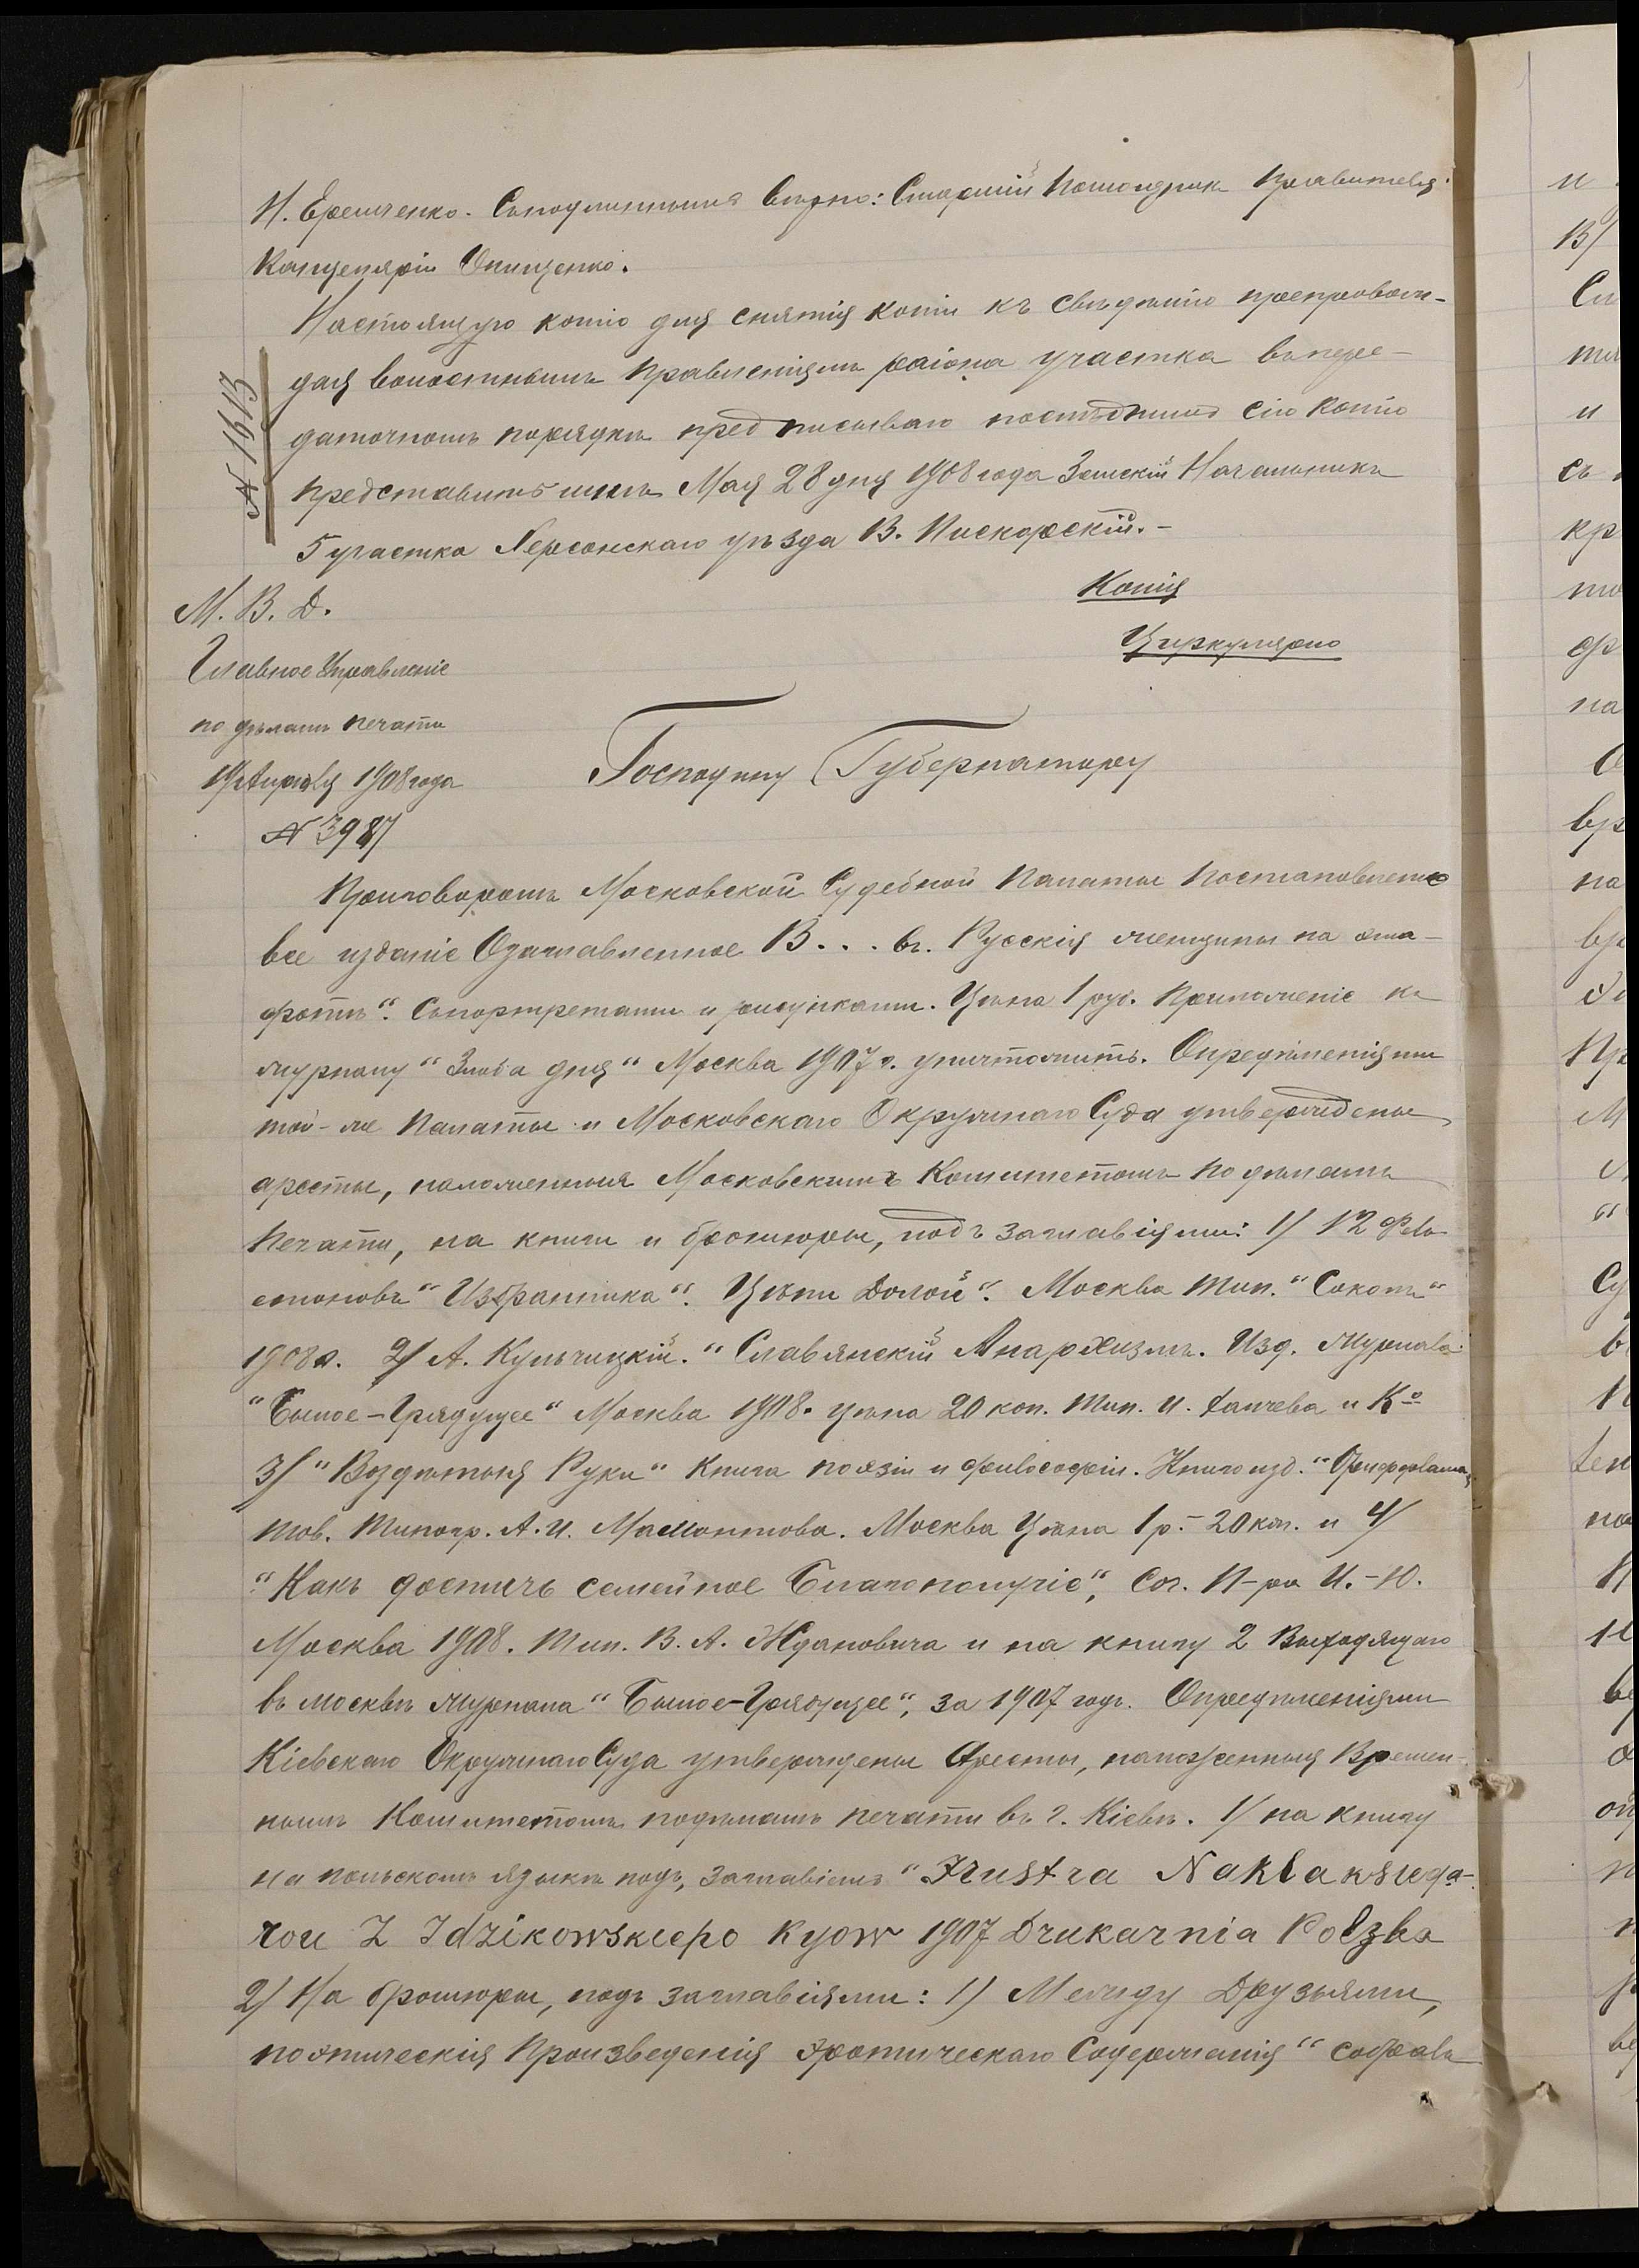 Н. Еремченко. Съподлиннымъ вѣрно: Старшій Помощникъ Правителя
Канцеляріи Онищенко.
Настоящую копію для снятія копіи къ свѣдѣнію препровож-
дая волостнымъ правленіямъ раіона участка въ пере-
даточномъ порядкѣ предписываю послѣднему сію копію
представить мнѣ Мая 28 дня 1908 года Земскій Начальникъ
5 участка Херсонскаго уѣзда В. Пискорскій.-
№ 1613
Копія
Циркулярно
М. В. Д.
Главное Управленіе
по дѣламъ печати
19 Апрѣля 1908 года
№ 3987
Господину Губернатору
Приговоромъ Московской Судебной Палаты постановлено
все изданіе Озаглавленное В... въ. Русскія женщины на эша-
фотѣ". Съпортретами и рисунками. Цѣна 1 руб. Приложеніе къ
журналу "Злоба дня" Москва 1907 г. уничтожить. Опредѣленіями
той-же Палаты и Московскаго Окружнаго Суда утверждены
аресты, наложенныя Московскимъ Комитетомъ по дѣламъ
печати, на книги и брошюры, подъ заглавіями: 1/ 12 Фель-
етоновъ "Избранника". Цѣпи Долой". Москва тип. "Соколъ"
1908 г. 2/ А. Кульчицкій. "Славянскій Анархизмъ. Изд. Журнала
"Былое-Грядущее" Москва 1908. цѣна 20 коп. Тип. И. и Ко
3/ "Воздѣтыя Руки" Книга поэзіи и философіи. Книгоизд.
тов. Типогр. А. И. Мамонтова. Москва Цѣна 1 р.- 20 коп. и 4/
"Какъ достичь семейное Благополучіе", Соч. И.-Ю.
Москва 1908. Тип. В. А. Ждановича и на книгу 2 Выходящаго
въ Москвѣ журнала "Былое-Грядущее", за 1907 годъ. Опредѣленіями
Кіевскаго Окружнаго Суда утверждены Аресты, наложенныя Времен-
нымъ Комитетомъ подѣламъ печати въ г. Кіевѣ. 1/ на книгу
на польскомъ языкѣ подъ, заглавіемъ "Frustra Nakla ksiega-
rou Z Idzikowskiepo Kyow 1907 Drukarnia Polzka
2/ На брошюры, подъ заглавіями: 1) Между Друзьями,
поэтическія Произведенія эротическаго Содержанія" собралъ